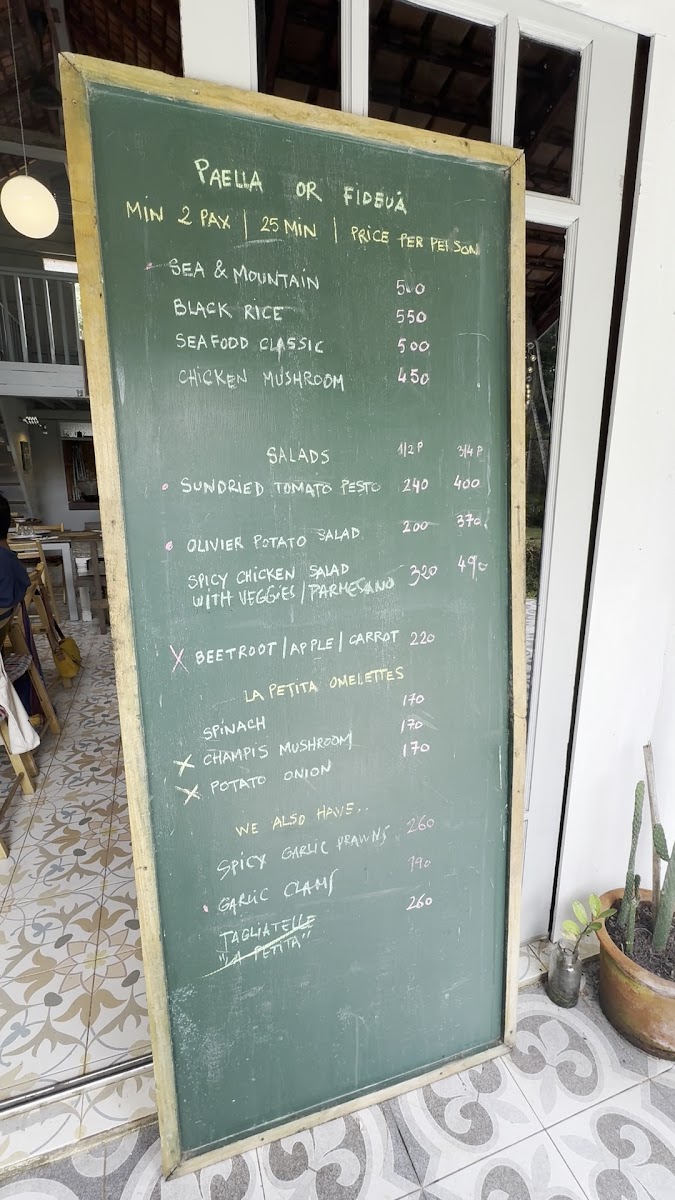 PAELLA OR FIDEUÁ
MIN 2 PAX | 25 MIN | PRICE PER PERSON
SEA & MOUNTAIN 500
BLACK RICE 550
SEAFOOD CLASSIC 500
CHICKEN MUSHROOM 450
SALADS 1/2 P 3/4 P
SUNDRIED TOMATO PESTO 240 400
OLIVIER POTATO SALAD 200 370
SPICY CHICKEN SALAD
WITH VEGGIES / PARMESANO 320 490
X BEETROOT / APPLE / CARROT 220
LA PETITA OMELETTES
SPINACH 170
X CHAMPIS MUSHROOM 170
X POTATO ONION 170
WE ALSO HAVE..
SPICY GARLIC PRAWNS 260
GARLIC CLAMS 190
TAGLIATELLE 260
"LA PETITA"